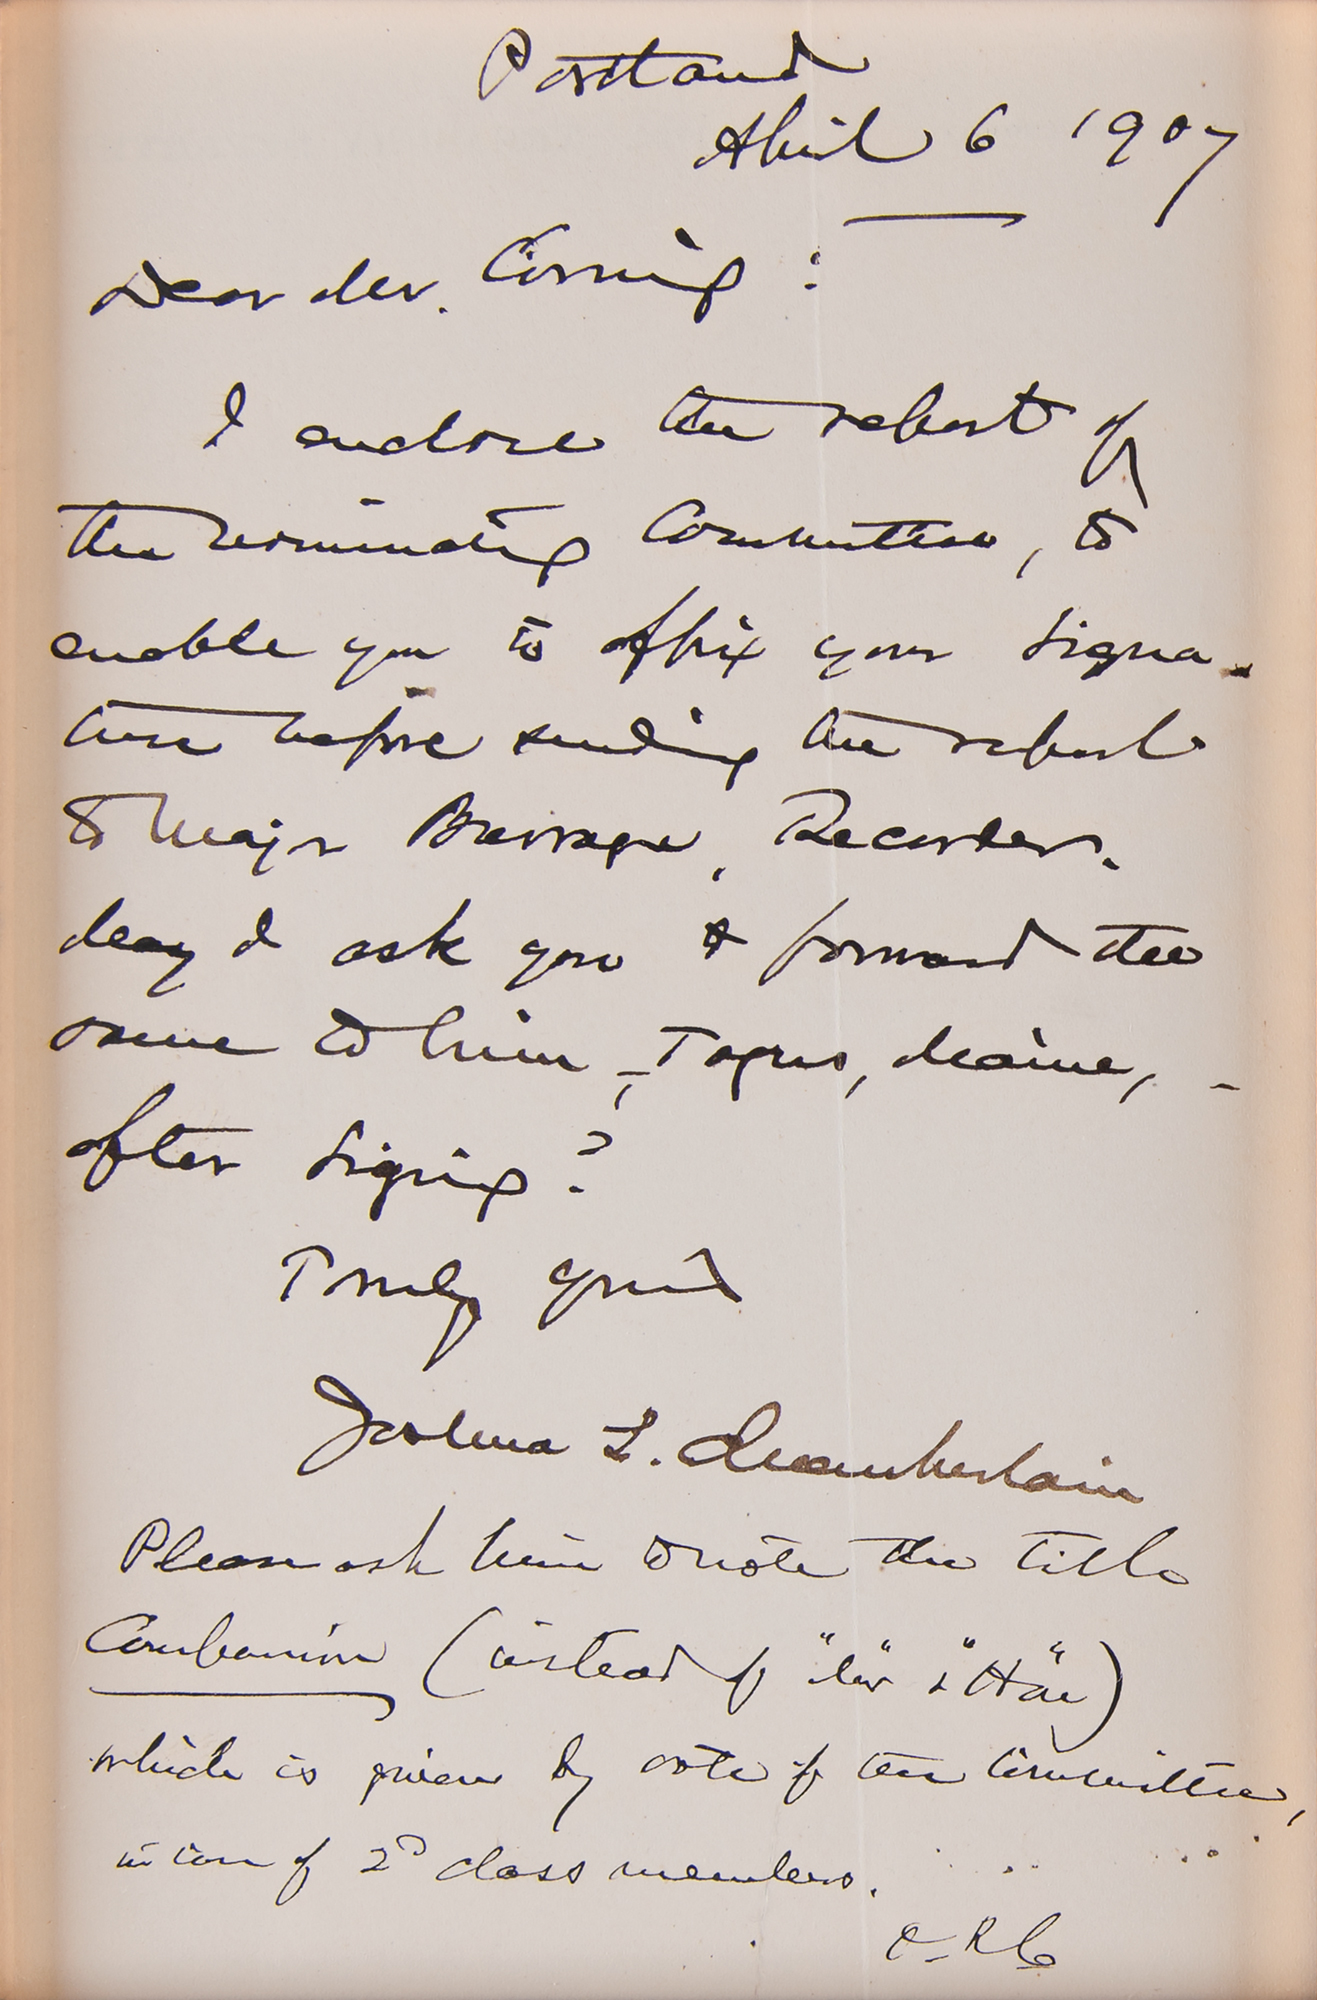 Portland
April 6 1907
Dear Mr. Corning:
I enclose the report of
the nominating Committee, to
enable you to affix your signa-
ture before sending the report
to Major Burrage, Recorder.
May I ask you to forward the
same to him, Togus, Maine, -
after signing?
Truly yours
Joshua L. Chamberlain
Please ask him to note the title
Companion (instead of "Mr" & "Hon")
which is given by vote of the Committee,
in case of 2d class members.